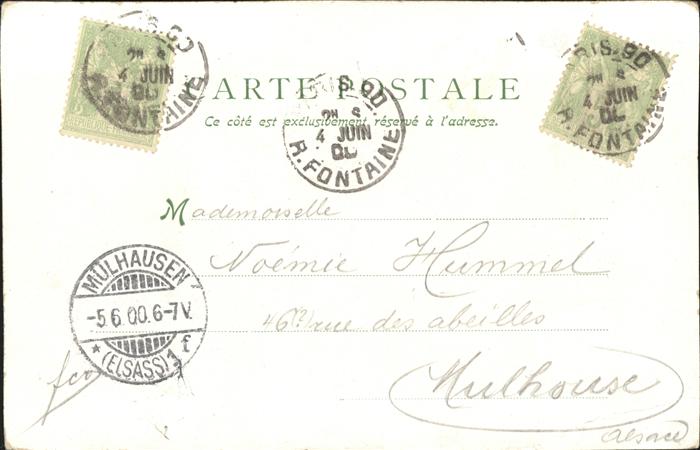 CARTE POSTALE
Ce côté est exclusivement réservé à l'adresse.
PARIS. 90
4 JUIN
00
R. FONTAINE
Mademoiselle
Noémie Hummel
46 rue des abeilles
Mulhouse
Alsace
MÜLHAUSEN
-5.6.00.6-7V.
* (ELSASS) 1 f
fco